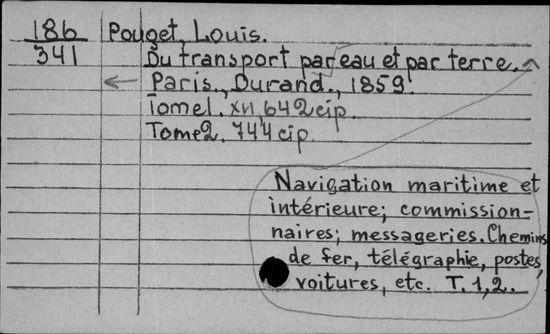 186
341
Pouget, Louis.
Du transport par eau et par terre.
Paris., Durand., 1859.
Tome1. XII, 642 cip.
Tome2. 744 cip.
Navigation maritime et
intérieure; commission=
naires; messageries. Chemins
de fer, télégraphie, postes,
voitures, etc. T. 1, 2.